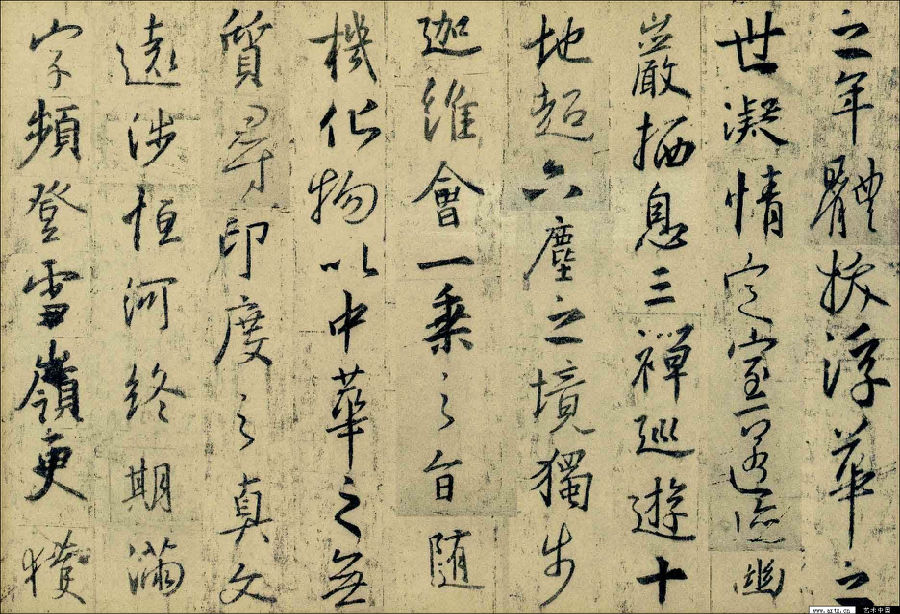 之年體拔浮華之
世凝情定室匿迹幽
巖栖息三禪巡遊十
地超六塵之境獨步
迦維會一乘之旨随
機化物以中華之無
質尋印度之真文
遠涉恒河終期滿
字頻登雪嶺更獲
www.artx.cn 艺术中国